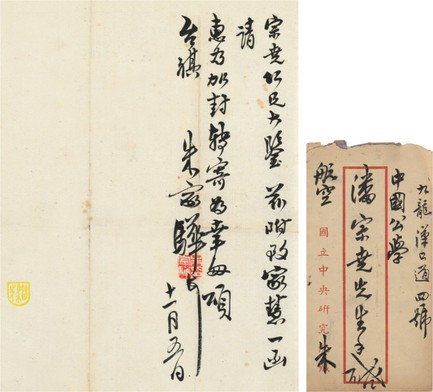 宗堯仁兄大鑒茲附致家慧一函
請
惠為加封轉寄為幸毋頌
台祺
朱家驊
十一月五日
九龍漢口道四號
中國公學
潘宗堯先生
航空
國立中央研究院
朱